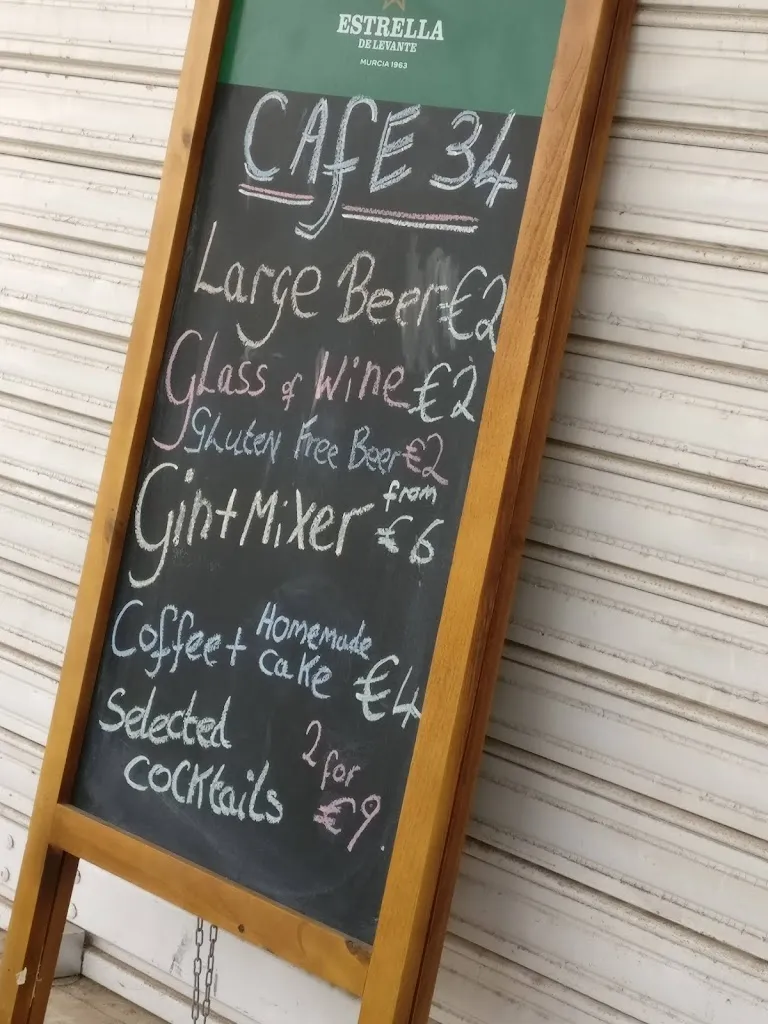 ESTRELLA
DE LEVANTE
MURCIA 1963
CAfE 34
Large Beer €2
Glass of Wine €2
Gluten Free Beer €2
Gin + Mixer from €6
Coffee + Homemade Cake €4
Selected cocktails 2 for €9.